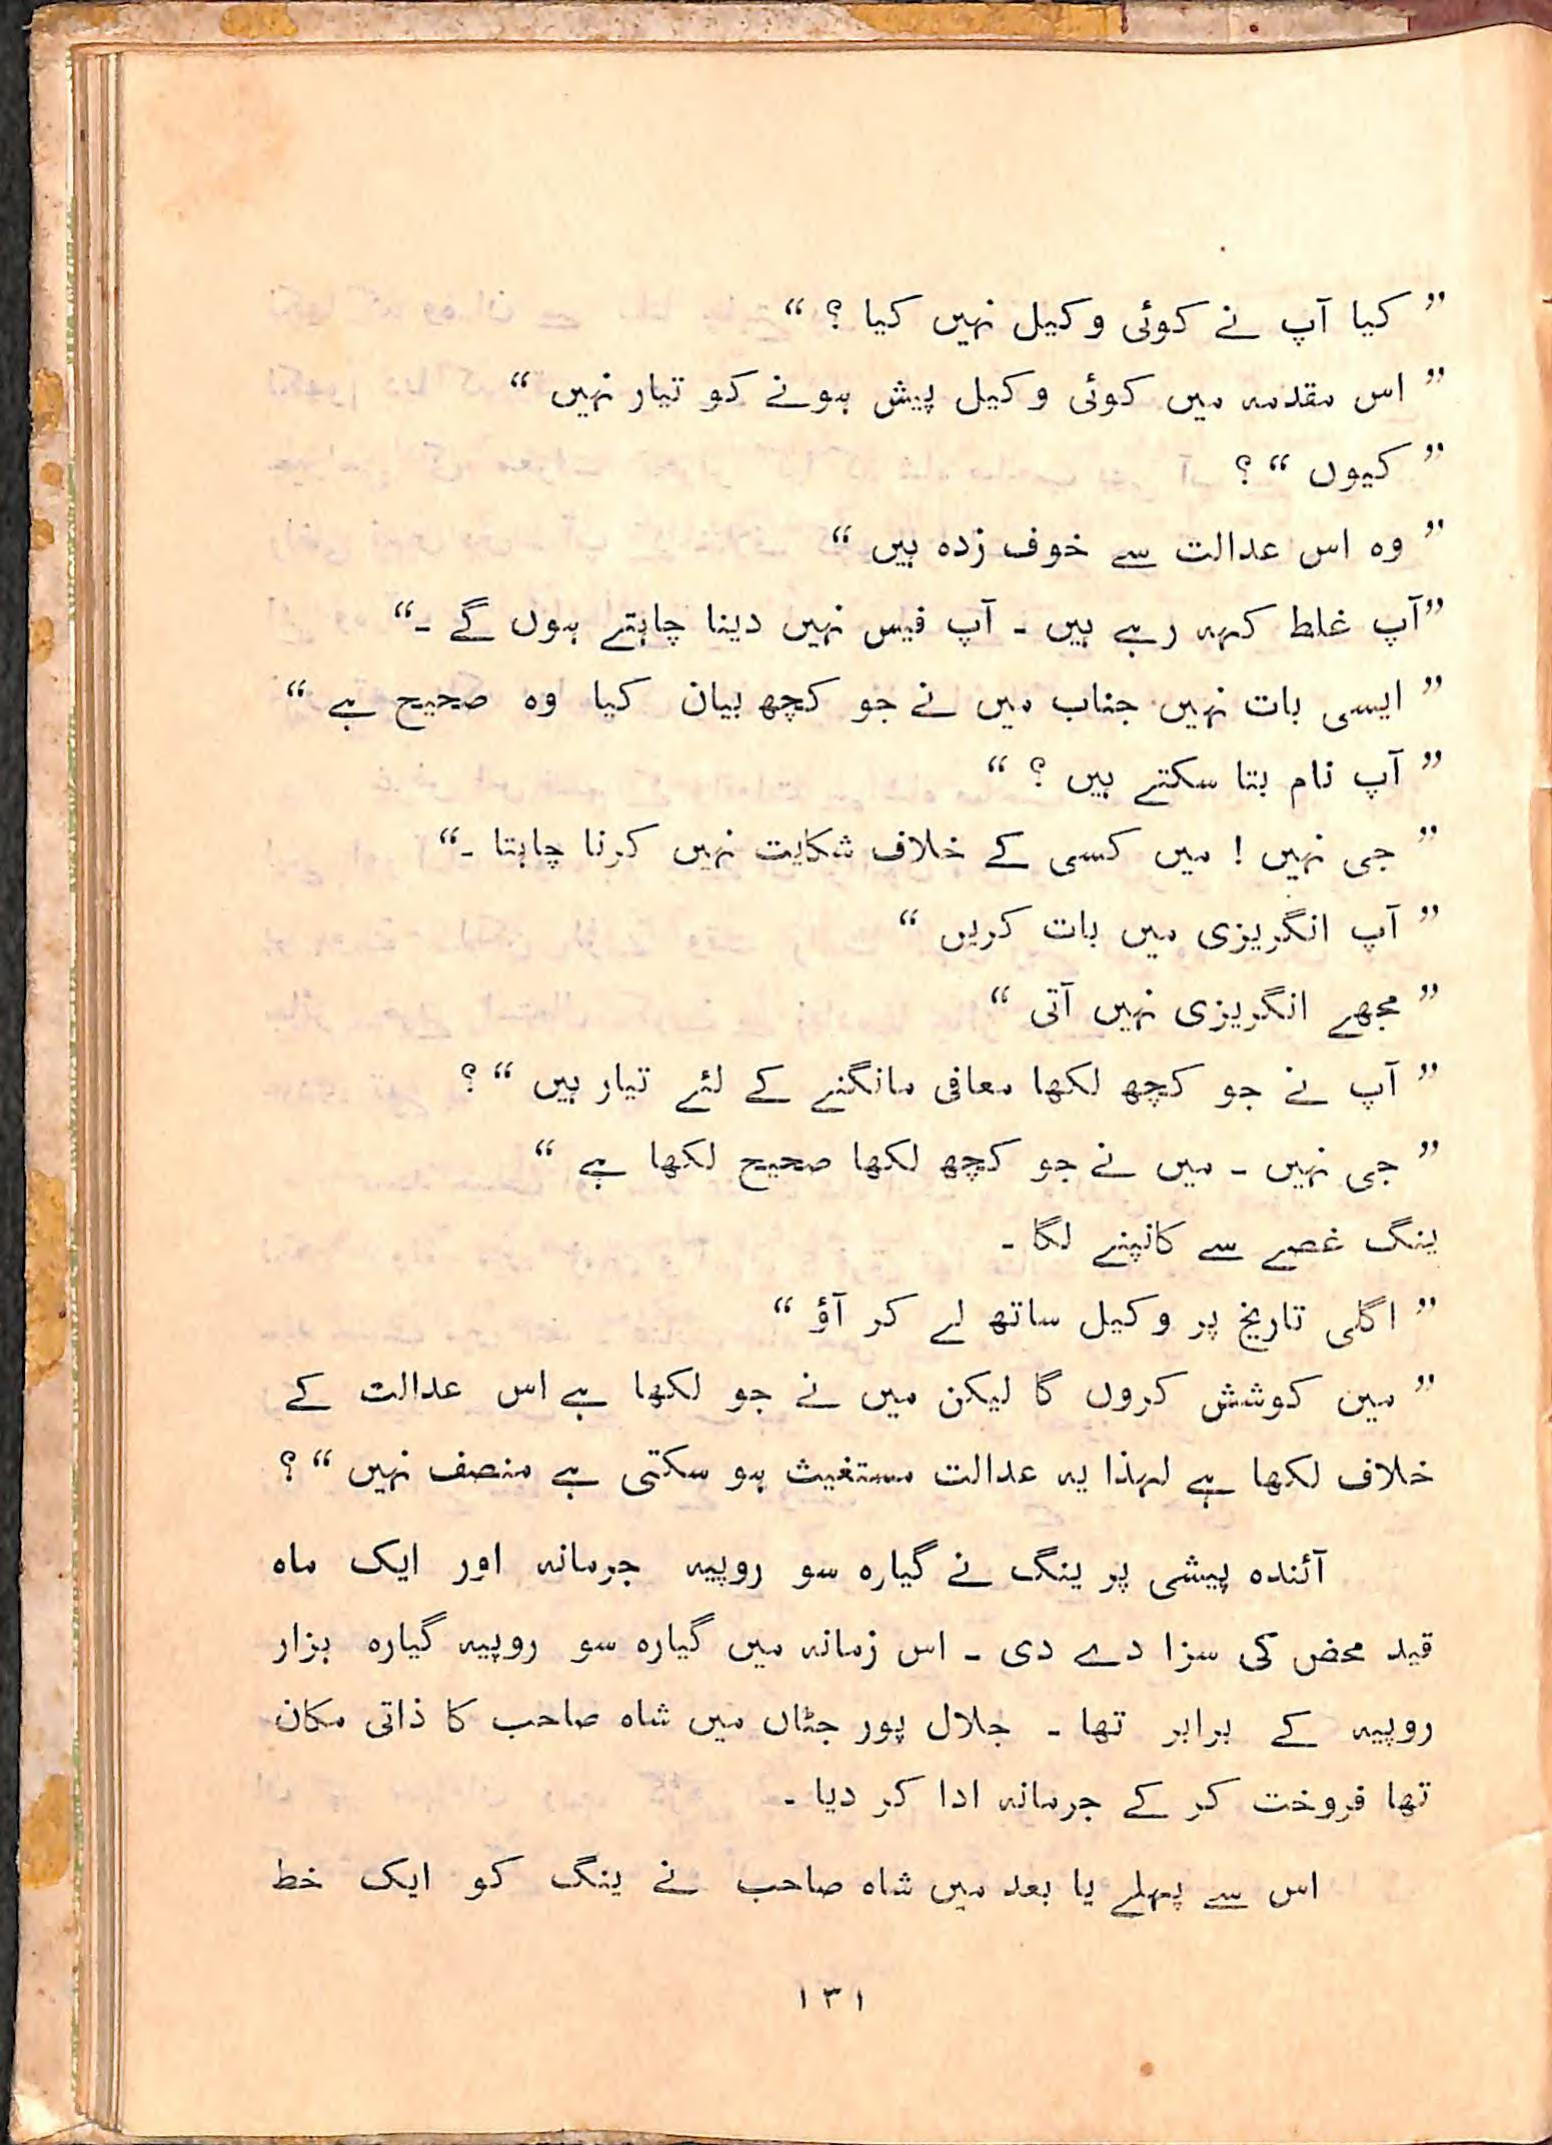 ” کیا آپ نے کوئی وکیل نہیں کیا ؟ “
” اس مقدمہ میں کوئی وکیل پیش ہونے کو تیار نہیں “
” کیوں “ ؟
” وہ اس عدالت سے خوف زدہ ہیں “
”آپ غلط کہہ رہے ہیں ۔ آپ فیس نہیں دینا چاہتے ہوں گے ۔“
” ایسی بات نہیں جناب میں نے جو کچھ بیان کیا وہ صحیح ہے “
” آپ نام بتا سکتے ہیں ؟ “
” جی نہیں ! میں کسی کے خلاف شکایت نہیں کرنا چاہتا ۔“
” آپ انگریزی میں بات کریں “
” مجھے انگریزی نہیں آتی “
” آپ نے جو کچھ لکھا معافی مانگنے کے لئے تیار ہیں “ ؟
” جی نہیں ۔ میں نے جو کچھ لکھا صحیح لکھا ہے “
ینگ غصے سے کانپنے لگا ۔
” اگلی تاریخ پر وکیل ساتھ لے کر آؤ “
” مین کوشش کروں گا لیکن میں نے جو لکھا ہے اس عدالت کے
خلاف لکھا ہے لہذا یہ عدالت مستغیث ہو سکتی ہے منصف نہیں “ ؟
آئندہ پیشی پر ینگ نے گیارہ سو روپیہ جرمانہ اور ایک ماہ
قید محض کی سزا دے دی ۔ اس زمانہ میں گیارہ سو روپیہ گیارہ ہزار
روپیہ کے برابر تھا ۔ جلال پور جٹاں میں شاہ صاحب کا ذاتی مکان
تھا فروخت کر کے جرمانہ ادا کر دیا ۔
اس سے پہلے یا بعد میں شاہ صاحب نے ینگ کو ایک خط
۱۳۱